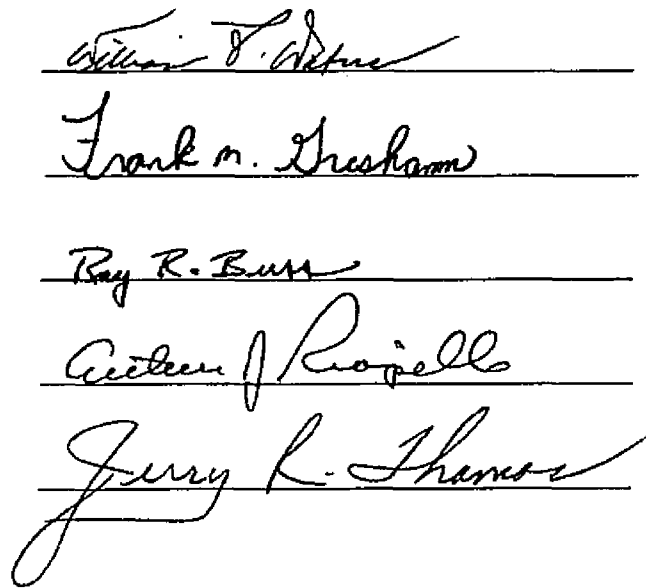 William F. Waters
Frank M. Gresham
Ray R. Buss
Arthur J Riopelle
Jerry R. Thomas